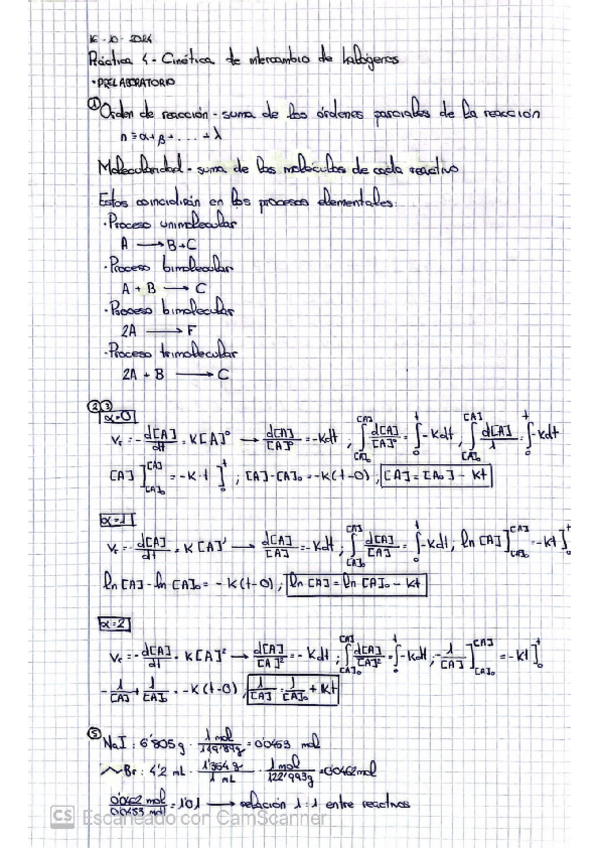 16-10-2024
Práctica 4 - Cinética de intercambio de halógenos
• PRELABORATORIO
① Orden de reacción - suma de los órdenes parciales de la reacción
n = α+β+ .... + λ
Molecularidad - suma de las moléculas de cada reactivo
Estos coincidirán en los procesos elementales:
• Proceso unimolecular
A → B+C
• Proceso bimolecular
A + B → C
• Proceso bimolecular
2A → F
• Proceso trimolecular
2A + B → C
②③
α=0
Vr = - d[A]/dt = K[A]⁰ → d[A]/[A]⁰ = -Kdt ; ∫[A]₀^[A] d[A]/[A]⁰ = ∫₀^t -Kdt ; ∫[A]₀^[A] d[A]/1 = ∫₀^t -Kdt
[A]][A]₀^[A] = -K·t]₀^t ; [A]-[A]₀ = -K(t-0) ; [A] = [A₀] - Kt
α=1
Vr = - d[A]/dt = K[A]¹ → d[A]/[A] = -Kdt ; ∫[A]₀^[A] d[A]/[A] = ∫₀^t -Kdt ; ln[A]][A]₀^[A] = -Kt]₀^t
ln[A]-ln[A]₀ = -K(t-0) ; ln[A] = ln[A]₀ - Kt
α=2
Vr = - d[A]/dt = K[A]² → d[A]/[A]² = -Kdt ; ∫[A]₀^[A] d[A]/[A]² = ∫₀^t -Kdt ; -1/[A]][A]₀^[A] = -Kt]₀^t
-1/[A] + 1/[A]₀ = -K(t-0) ; 1/[A] = 1/[A]₀ + Kt
⑤ NaI : 6'805g · 1 mol/149'89g = 0'0453 mol
Br : 4'2 mL · 1'354 g/1 mL · 1 mol/122'993g = 0'0462 mol
0'0462 mol/0'0453 mol = 1'01 → relación 1:1 entre reactivos
CS Escaneado con CamScanner